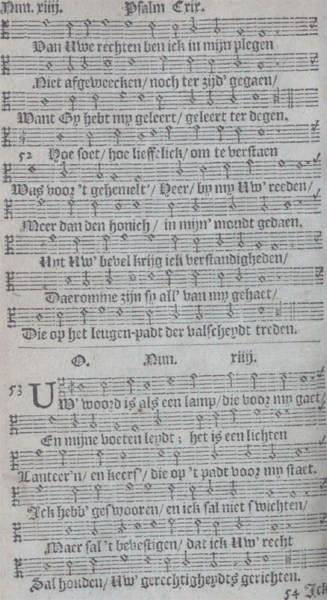 Num. xiiij. Psalm Cxix.
Van Uwe rechten ben ick in mijn plegen
Niet afgeweecken/ noch ter zijd' gegaen/
Want Gy hebt my geleert/ geleert ter degen.
52 Hoe soet/ hoe lieffelick/ om te verstaen
Was voor 't gehemelt'/ Heer/ by my Uw' reeden/
Meer dan den honich/ in mijn' mondt gedaen.
Uyt Uw' bevel krijg ick verstandigheden/
Daeromme zijn sy all' van my gehaet/
Die op het leugen-padt der valscheydt treden.
O. Num. xiiij.
53 UW' woord is als een lamp/ die voor my gaet/
En mijne voeten leydt; het is een lichten
Lanteer'n/ en keers'/ die op 't padt voor my staet.
Ick hebb' geswooren/ en ick sal niet swichten/
Maer sal 't bevestigen/ dat ick Uw' recht
Sal houden/ Uw' gerechtigheydts gerichten.
54 Ick